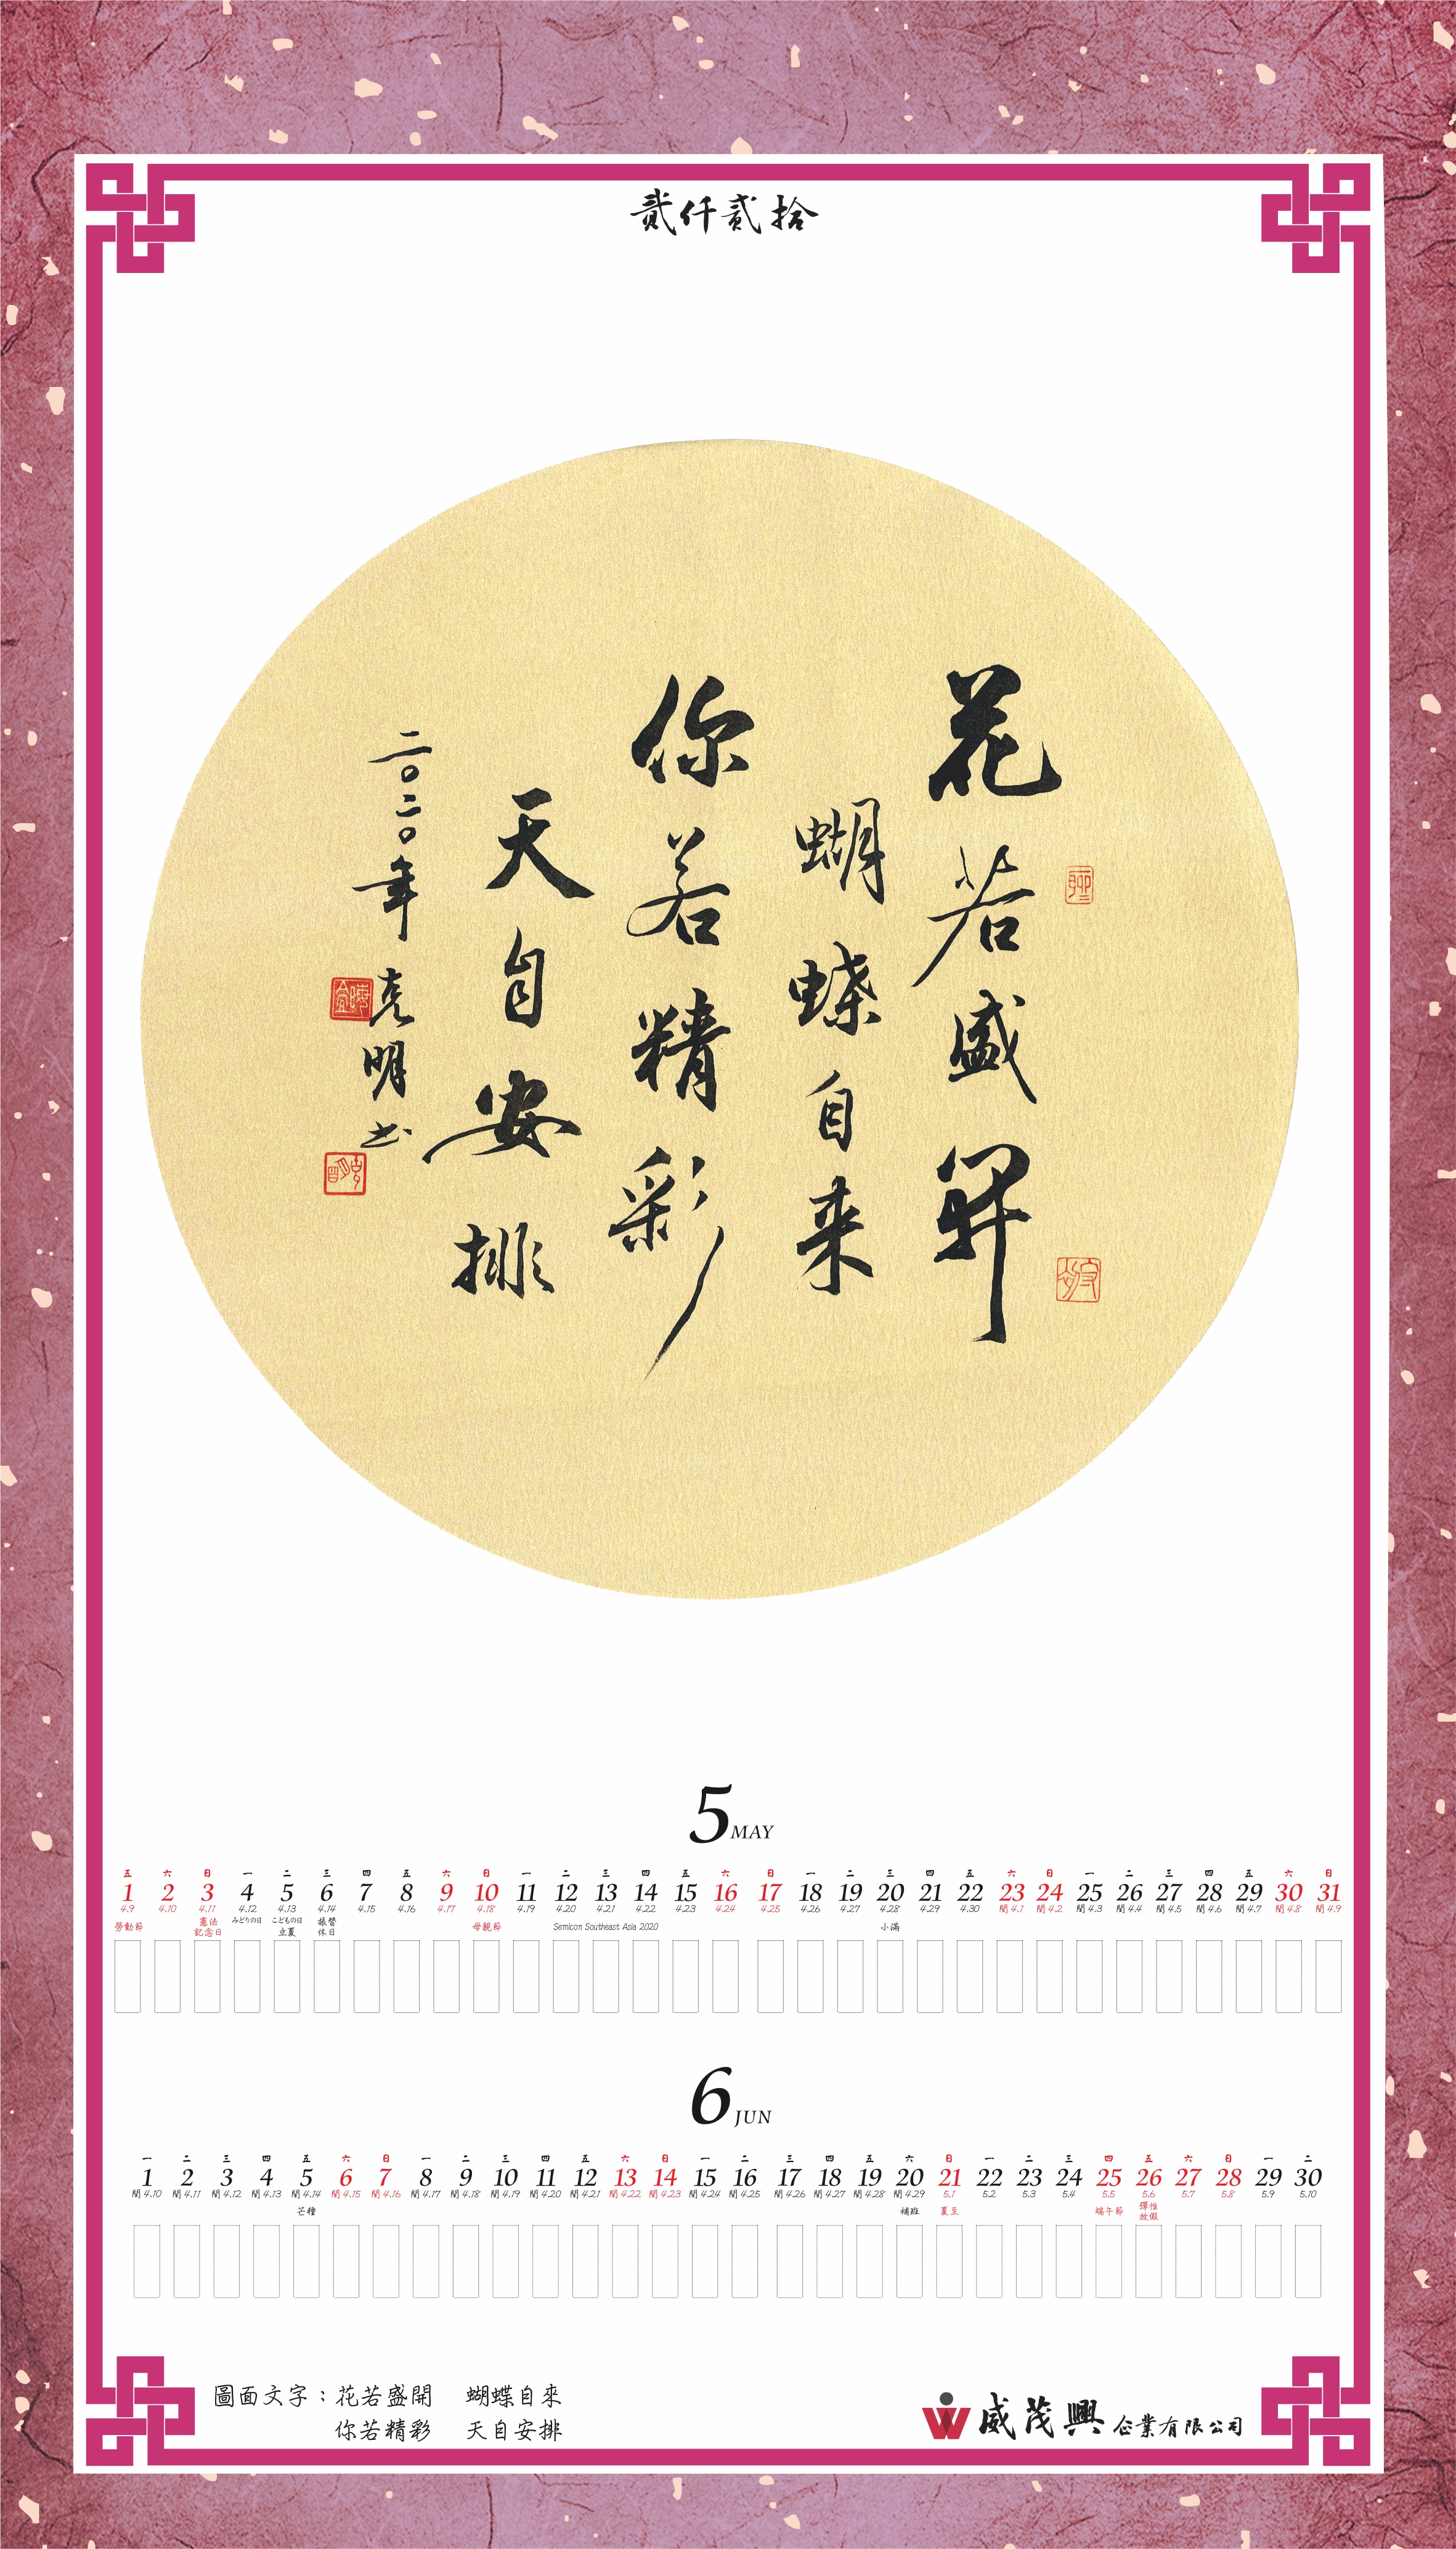 貳仟貳拾
花若盛開
蝴蝶自来
你若精彩
天自安排
二〇二〇年克明书
5 MAY
五 六 日 一 二 三 四 五 六 日 一 二 三 四 五 六 日 一 二 三 四 五 六 日 一 二 三 四 五 六 日
1 2 3 4 5 6 7 8 9 10 11 12 13 14 15 16 17 18 19 20 21 22 23 24 25 26 27 28 29 30 31
4.9 4.10 4.11 4.12 4.13 4.14 4.15 4.16 4.17 4.18 4.19 4.20 4.21 4.22 4.23 4.24 4.25 4.26 4.27 4.28 4.29 4.30 閏 4.1 閏 4.2 閏 4.3 閏 4.4 閏 4.5 閏 4.6 閏 4.7 閏 4.8 閏 4.9
勞動節 憲法 みどりの日 こどもの日 振替 母親節 Semicon Southeast Asia 2020 小滿
記念日 立夏 休日
6 JUN
一 二 三 四 五 六 日 一 二 三 四 五 六 日 一 二 三 四 五 六 日 一 二 三 四 五 六 日 一 二
1 2 3 4 5 6 7 8 9 10 11 12 13 14 15 16 17 18 19 20 21 22 23 24 25 26 27 28 29 30
閏 4.10 閏 4.11 閏 4.12 閏 4.13 閏 4.14 閏 4.15 閏 4.16 閏 4.17 閏 4.18 閏 4.19 閏 4.20 閏 4.21 閏 4.22 閏 4.23 閏 4.24 閏 4.25 閏 4.26 閏 4.27 閏 4.28 閏 4.29 5.1 5.2 5.3 5.4 5.5 5.6 5.7 5.8 5.9 5.10
芒種 補班 夏至 端午節 彈性
放假
圖面文字：花若盛開 蝴蝶自來
你若精彩 天自安排
威茂興企業有限公司